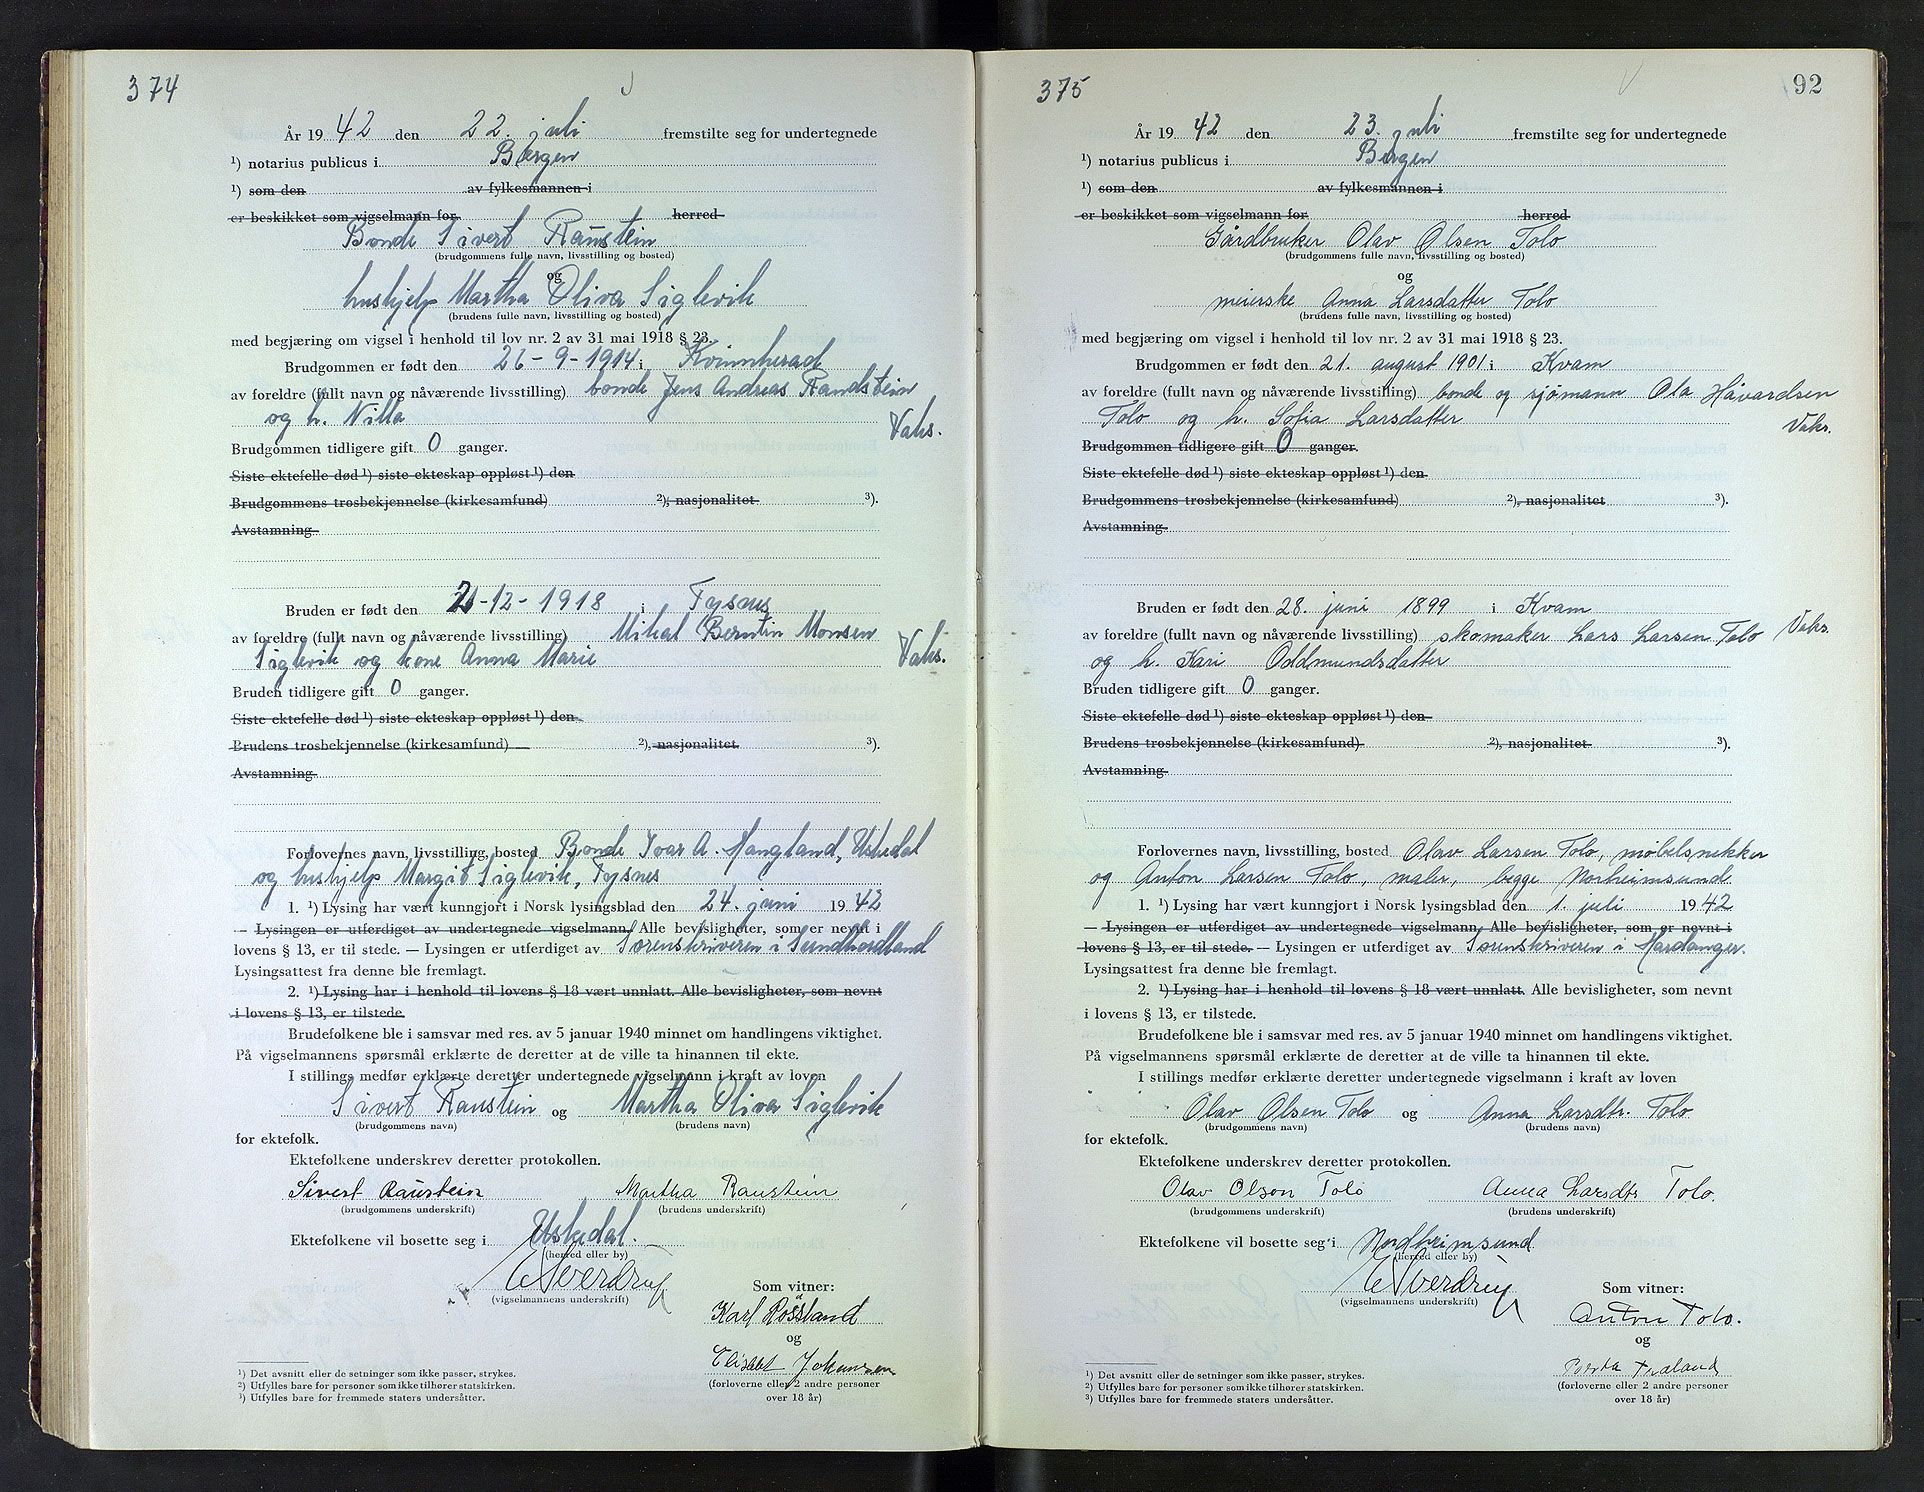 374
År 19 42 den 22. juli fremstilte seg for undertegnede
¹) notarius publicus i Bergen
¹) som den av fylkesmannen i
er beskikket som vigselmann for herred
Bonde Sivert Raustein
(brudgommens fulle navn, livsstilling og bosted)
og
hushjelp Martha Oliva Siglevik
(brudens fulle navn, livsstilling og bosted)
med begjæring om vigsel i henhold til lov nr. 2 av 31 mai 1918 § 23.
Brudgommen er født den 26-9-1914 i Kvinnherad
av foreldre (fullt navn og nåværende livsstilling) bonde Jens Andreas Raudstein
og h. Nilla
Vaks.
Brudgommen tidligere gift 0 ganger.
Siste ektefelle død ¹) siste ekteskap oppløst ¹) den
Brudgommens trosbekjennelse (kirkesamfund) ²), nasjonalitet ³).
Avstamning
Bruden er født den -12-1918 i Tysnes
av foreldre (fullt navn og nåværende livsstilling) Mikal Berntin Monsen
Siglevik og kone Anna Marie
Vaks.
Bruden tidligere gift 0 ganger.
Siste ektefelle død ¹) siste ekteskap oppløst ¹) den
Brudens trosbekjennelse (kirkesamfund) ²), nasjonalitet ³).
Avstamning
Forlovernes navn, livsstilling, bosted Bonde Ivar A. Haugland, Uskedal
og hushjelp Margit Siglevik, Tysnes
1. ¹) Lysing har vært kunngjort i Norsk lysingsblad den 24. juni 19 42
— Lysingen er utferdiget av undertegnede vigselmann. Alle bevisligheter, som er nevnt i
lovens § 13, er til stede. — Lysingen er utferdiget av Sorenskriveren i Sundhordland
Lysingsattest fra denne ble fremlagt.
2. ¹) Lysing har i henhold til lovens § 18 vært unnlatt. Alle bevisligheter, som nevnt
i lovens § 13, er tilstede.
Brudefolkene ble i samsvar med res. av 5 januar 1940 minnet om handlingens viktighet.
På vigselmannens spørsmål erklærte de deretter at de ville ta hinannen til ekte.
I stillings medfør erklærte deretter undertegnede vigselmann i kraft av loven
Sivert Raustein og Martha Oliva Siglevik
(brudgommens navn) (brudens navn)
for ektefolk.
Ektefolkene underskrev deretter protokollen.
Sivert Raustein Martha Raustein
(brudgommens underskrift) (brudens underskrift)
Ektefolkene vil bosette seg i Uskedal.
(herred eller by)
E Sverdrup
(vigselmannens underskrift)
Som vitner:
Karl Røssland
og
Elisabet Johannesen
(forloverne eller 2 andre personer
over 18 år)
¹) Det avsnitt eller de setninger som ikke passer, strykes.
²) Utfylles bare for personer som ikke tilhører statskirken.
³) Utfylles bare for fremmede staters undersåtter.
375 92
År 19 42 den 23. juli fremstilte seg for undertegnede
¹) notarius publicus i Bergen
¹) som den av fylkesmannen i
er beskikket som vigselmann for herred
Gårdbruker Olav Olsen Tolo
(brudgommens fulle navn, livsstilling og bosted)
og
meierske Anna Larsdatter Tolo
(brudens fulle navn, livsstilling og bosted)
med begjæring om vigsel i henhold til lov nr. 2 av 31 mai 1918 § 23.
Brudgommen er født den 21. august 1901 i Kvam
av foreldre (fullt navn og nåværende livsstilling) bonde og sjømann Ola Håvardsen
Tolo og h. Sofia Larsdatter
Vaks.
Brudgommen tidligere gift 0 ganger.
Siste ektefelle død ¹) siste ekteskap oppløst ¹) den
Brudgommens trosbekjennelse (kirkesamfund) ²), nasjonalitet ³).
Avstamning
Bruden er født den 28. juni 1899 i Kvam
av foreldre (fullt navn og nåværende livsstilling) skomaker Lars Larsen Tolo
Vaks.
og h. Kari Oddmundsdatter
Bruden tidligere gift 0 ganger.
Siste ektefelle død ¹) siste ekteskap oppløst ¹) den
Brudens trosbekjennelse (kirkesamfund) ²), nasjonalitet ³).
Avstamning
Forlovernes navn, livsstilling, bosted Olav Larsen Tolo, møbelsnekker
og Anton Larsen Tolo, maler, begge Norheimsund
1. ¹) Lysing har vært kunngjort i Norsk lysingsblad den 1. juli 19 42
— Lysingen er utferdiget av undertegnede vigselmann. Alle bevisligheter, som er nevnt i
lovens § 13, er til stede. — Lysingen er utferdiget av Sorenskriveren i Hardanger.
Lysingsattest fra denne ble fremlagt.
2. ¹) Lysing har i henhold til lovens § 18 vært unnlatt. Alle bevisligheter, som nevnt
i lovens § 13, er tilstede.
Brudefolkene ble i samsvar med res. av 5 januar 1940 minnet om handlingens viktighet.
På vigselmannens spørsmål erklærte de deretter at de ville ta hinannen til ekte.
I stillings medfør erklærte deretter undertegnede vigselmann i kraft av loven
Olav Olsen Tolo og Anna Larsdtr. Tolo
(brudgommens navn) (brudens navn)
for ektefolk.
Ektefolkene underskrev deretter protokollen.
Olav Olson Tolo Anna Larsdtr Tolo.
(brudgommens underskrift) (brudens underskrift)
Ektefolkene vil bosette seg i Nordheimsund
(herred eller by)
E Sverdrup
(vigselmannens underskrift)
Som vitner:
Anton Tolo.
og
(forloverne eller 2 andre personer
over 18 år)
¹) Det avsnitt eller de setninger som ikke passer, strykes.
²) Utfylles bare for personer som ikke tilhører statskirken.
³) Utfylles bare for fremmede staters undersåtter.